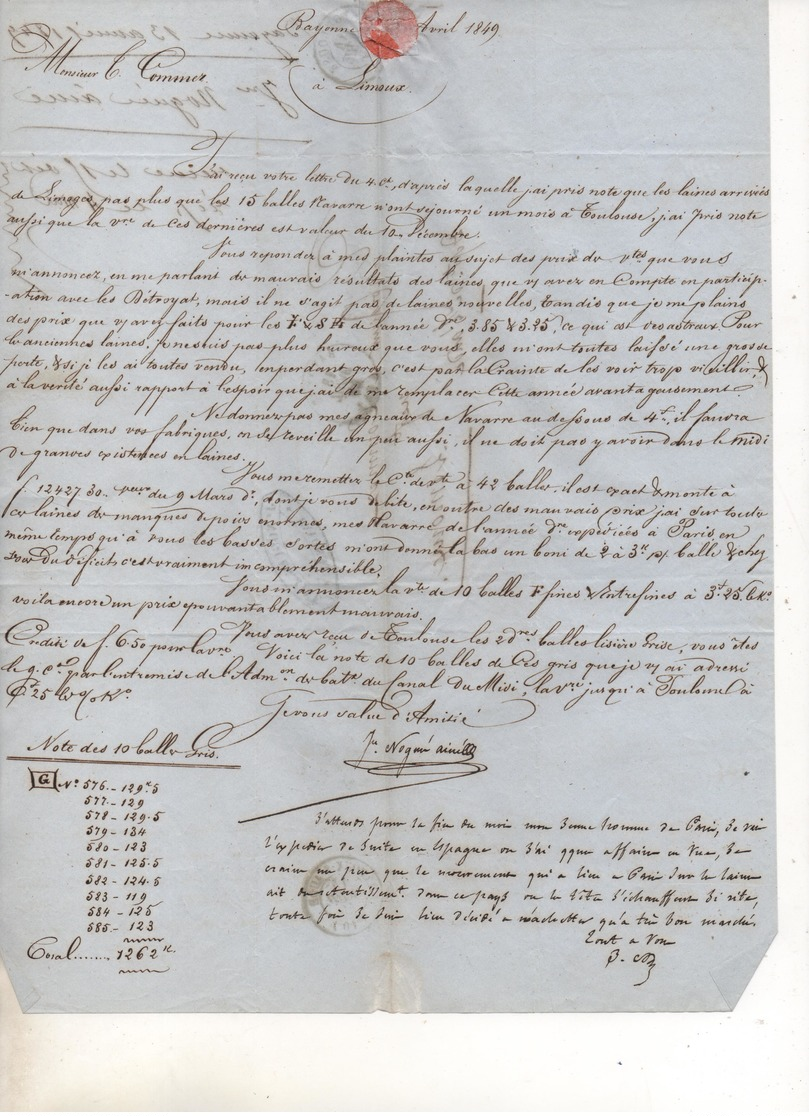 Bayonne Avril 1849
Monsieur C. Commez
à Limoux.
J'ai reçu votre lettre du 4 ct, d'après laquelle j'ai pris note que les laines arrivées
de Limoges, pas plus que les 15 balles Navarre n'ont séjourné un mois à Toulouse, j'ai pris note
aussi que la vre de ces dernières est valeur du 10 Décembre.
Vous repondez à mes plaintes au sujet des prix de vtes que vous
m'annoncez, en me parlant de mauvais résultats des laines que vs avez en Compte en particip-
-ation avec les Détroyat, mais il ne s'agit pas de laines nouvelles, tandis que je me plains
des prix que vs avez faits pour les F & S Fs de l'année dre, 3.85 & 3.25, ce qui est desastraux. Pour
les anciennes laines, je ne suis pas plus hureux que vous, elles m'ont toutes laissé une grosse
perte, & si je les ai toutes vendu, en perdant gros, c'est par la Crainte de les voir trop vieillir, &
à la verité aussi rapport à l'espoir que j'ai de me remplacer Cette année avantageusement.
Ne donnez pas mes agneaux de Navarre au dessous de 4f, il faudra
bien que dans vos fabriques, on se reveille un peu aussi, il ne doit pas y avoir dans le midi
de grandes existences en laines.
Vous me remettez le Cte de vte à 42 balles, il est exact & monte à
f. 12427.30. valeur du 9 Mars dr, dont je vous debite, en outre des mauvais prix j'ai sur toutes
ces laines de manques de poids enormes, mes Navarre de l'année dre expediées à Paris, en
même temps qu'à vous les basses sortes m'ont donné la bas un boni de 2 à 3 K p% balle & chez
vous du déficit, c'est vraiment incompréhensible.
Vous m'annoncez la vte de 10 balles F fines & Entrefines à 3f 25 le Ko
voila encore un prix epouvantablement mauvais.
Vous avez reçu de Toulouse les 2 dres balles lisière Grise, vous êtes
Credité de f. 6.50 pour la vre Voici la note de 10 balles de Ces gris que je vs ai adressé
le 9 ct par l'entremise de l'Admon de bateaux du Canal du Midi, la vre jusqu'à Toulouse à
f 25 les % Ko
Je vous salue d'Amitié
Jn Nogué ainé
Note des 10 balles Gris.
G No 576 - 129 K 5
577 - 129
578 - 129.5
579 - 134
580 - 123
581 - 125.5
582 - 124.5
583 - 119
584 - 125
585 - 123
Total ....... 1262 K.
J'attends pour la fin du mois mon Jeune homme de Paris, Je vais
l'expedier de suite en Espagne où J'ai qque affaire en vue, Je
crains un peu que le mouvement qui a lieu a Paris sur les laines
ait du retentissemt. dans ce pays ou les têtes s'échauffent si vite,
toute fois Je suis bien décidé a n'achetter qu'a très bon marché.
Tout a Vous